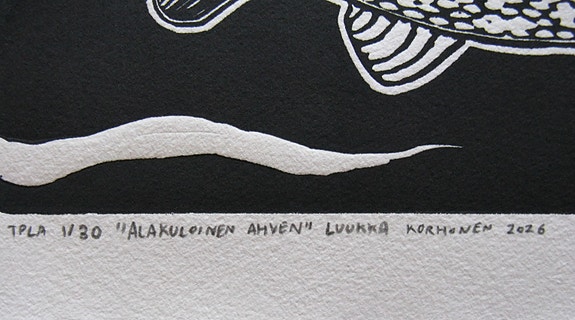 TPLA 1/30 "ALAKULOINEN AHVEN" LUUKKA KORHONEN 2026